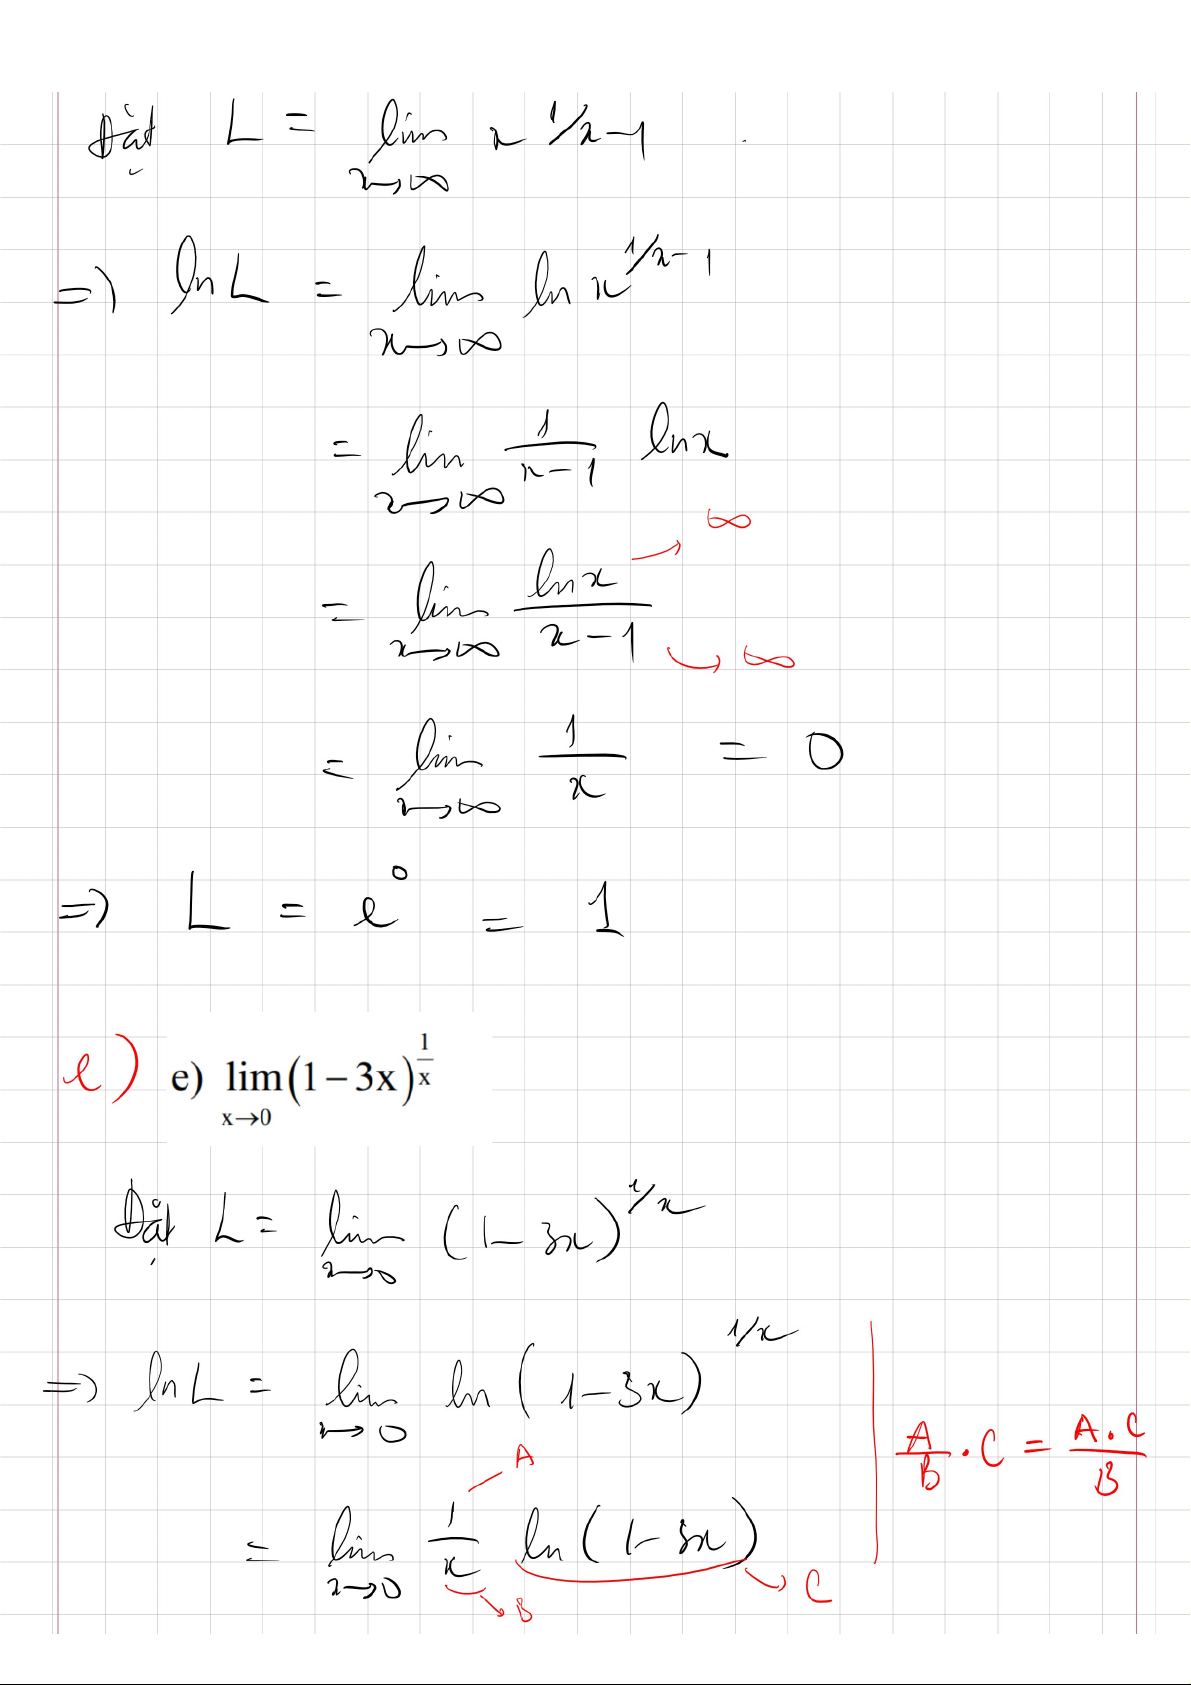 Đặt L = lim x→∞ x^1/x-1
=> ln L = lim x→∞ ln x^1/x-1
= lim x→∞ 1/(x-1) ln x
= lim x→∞ ln x → ∞ / x-1 → ∞
= lim x→∞ 1/x = 0
=> L = e^0 = 1
e) e) lim x→0 (1-3x)^1/x
Đặt L = lim x→0 (1-3x)^1/x
=> ln L = lim x→0 ln (1-3x)^1/x
A/B . C = A.C/B
= lim x→0 1/x ln (1-3x)
A
B
C